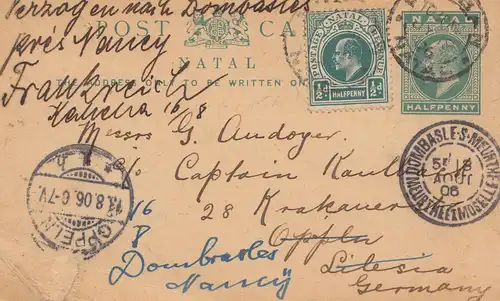 Verzogen nach Dombasles
près Nancy
Frankreich
16/8
POST CARD
NATAL
THE ADDRESS ONLY TO BE WRITTEN ON
POSTAGE NATAL REVENUE
½d ½d
HALFPENNY
NATAL
HALFPENNY
Messrs G. Andoyer
c/o Captain
28 Krakauer
Oppeln
Silesia
Germany
16
8
Dombasles
Nancy
OPPELN
13.8.06.6-7V.
DOMBASLE-S-MEURTHE
5E 18
AOUT
06
MEURTHE ET MOSELLE